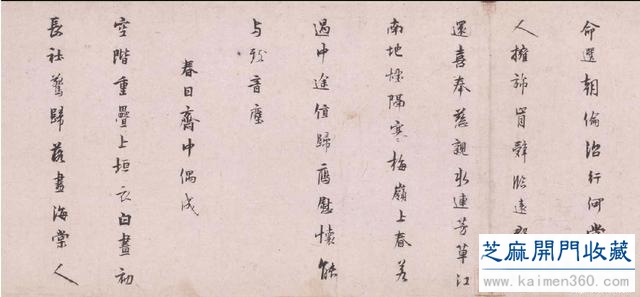 命選朝倫治行何
人擁旆肯辭臨遠
還喜奉慈親水連芳草江
南地隔寒梅嶺上春若
過中途值歸鴈慰懷能
与致音塵
春日齋中偶成
空階重疊上垣衣白晝初
長社鷰歸落盡海棠人
芝麻開門收藏
www.kaimen360.com